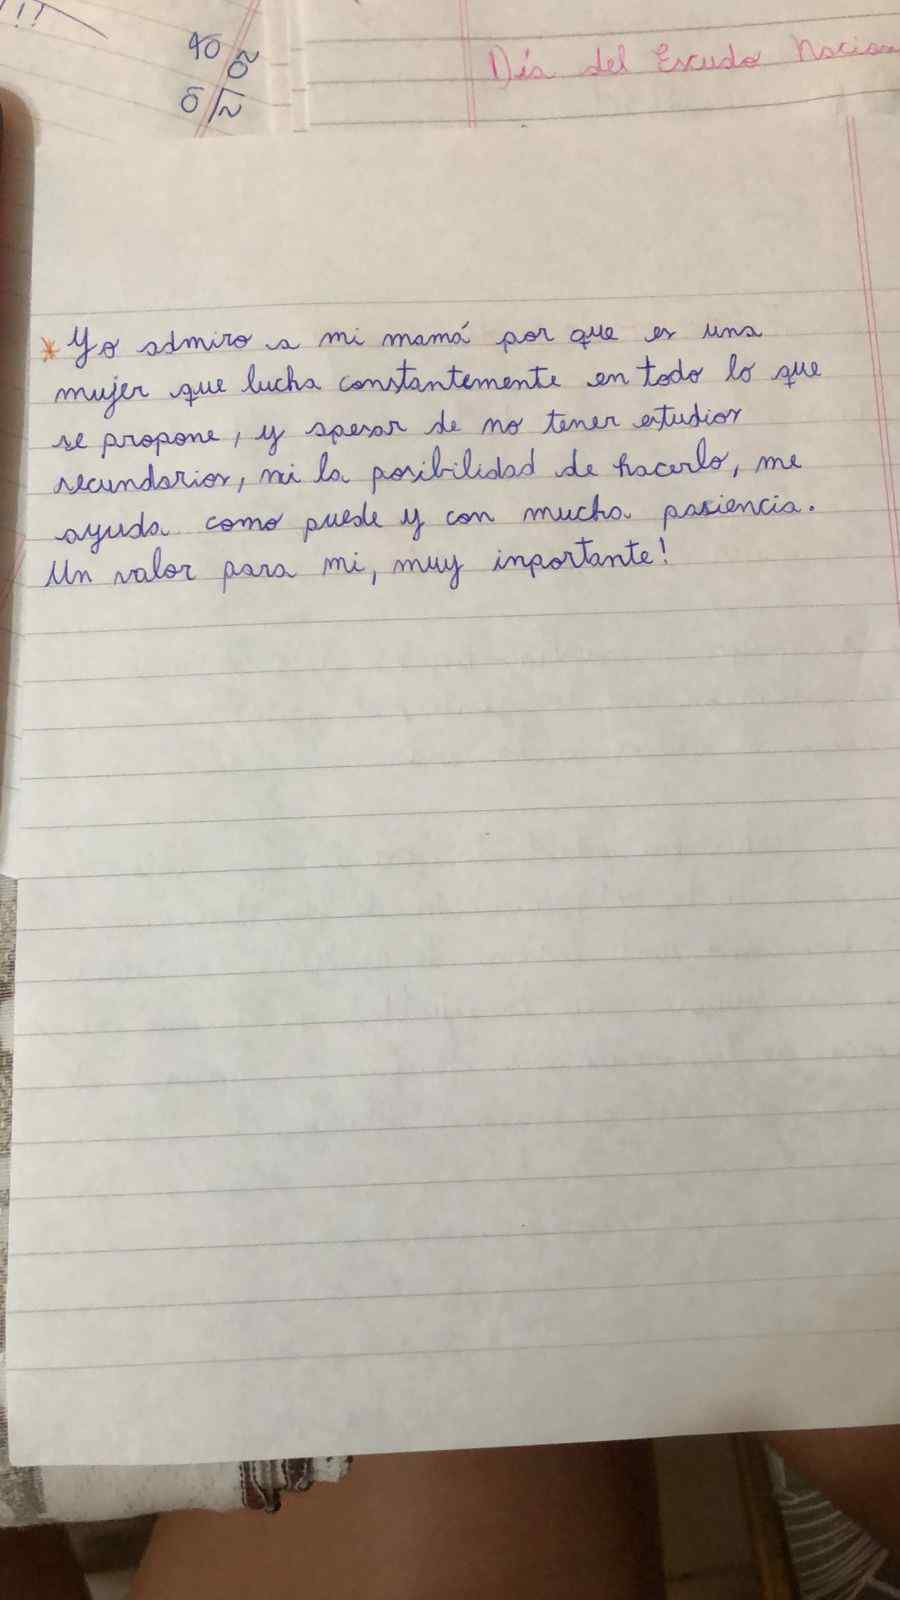 !!!
40 20
0 2
Día del Escudo Nacion
* Yo admiro a mi mamá por que es una
mujer que lucha constantemente en todo lo que
se propone, y apesar de no tener estudios
secundarios, ni la posibilidad de hacerlo, me
ayuda como puede y con mucha pasiencia.
Un valor para mi, muy inportante!